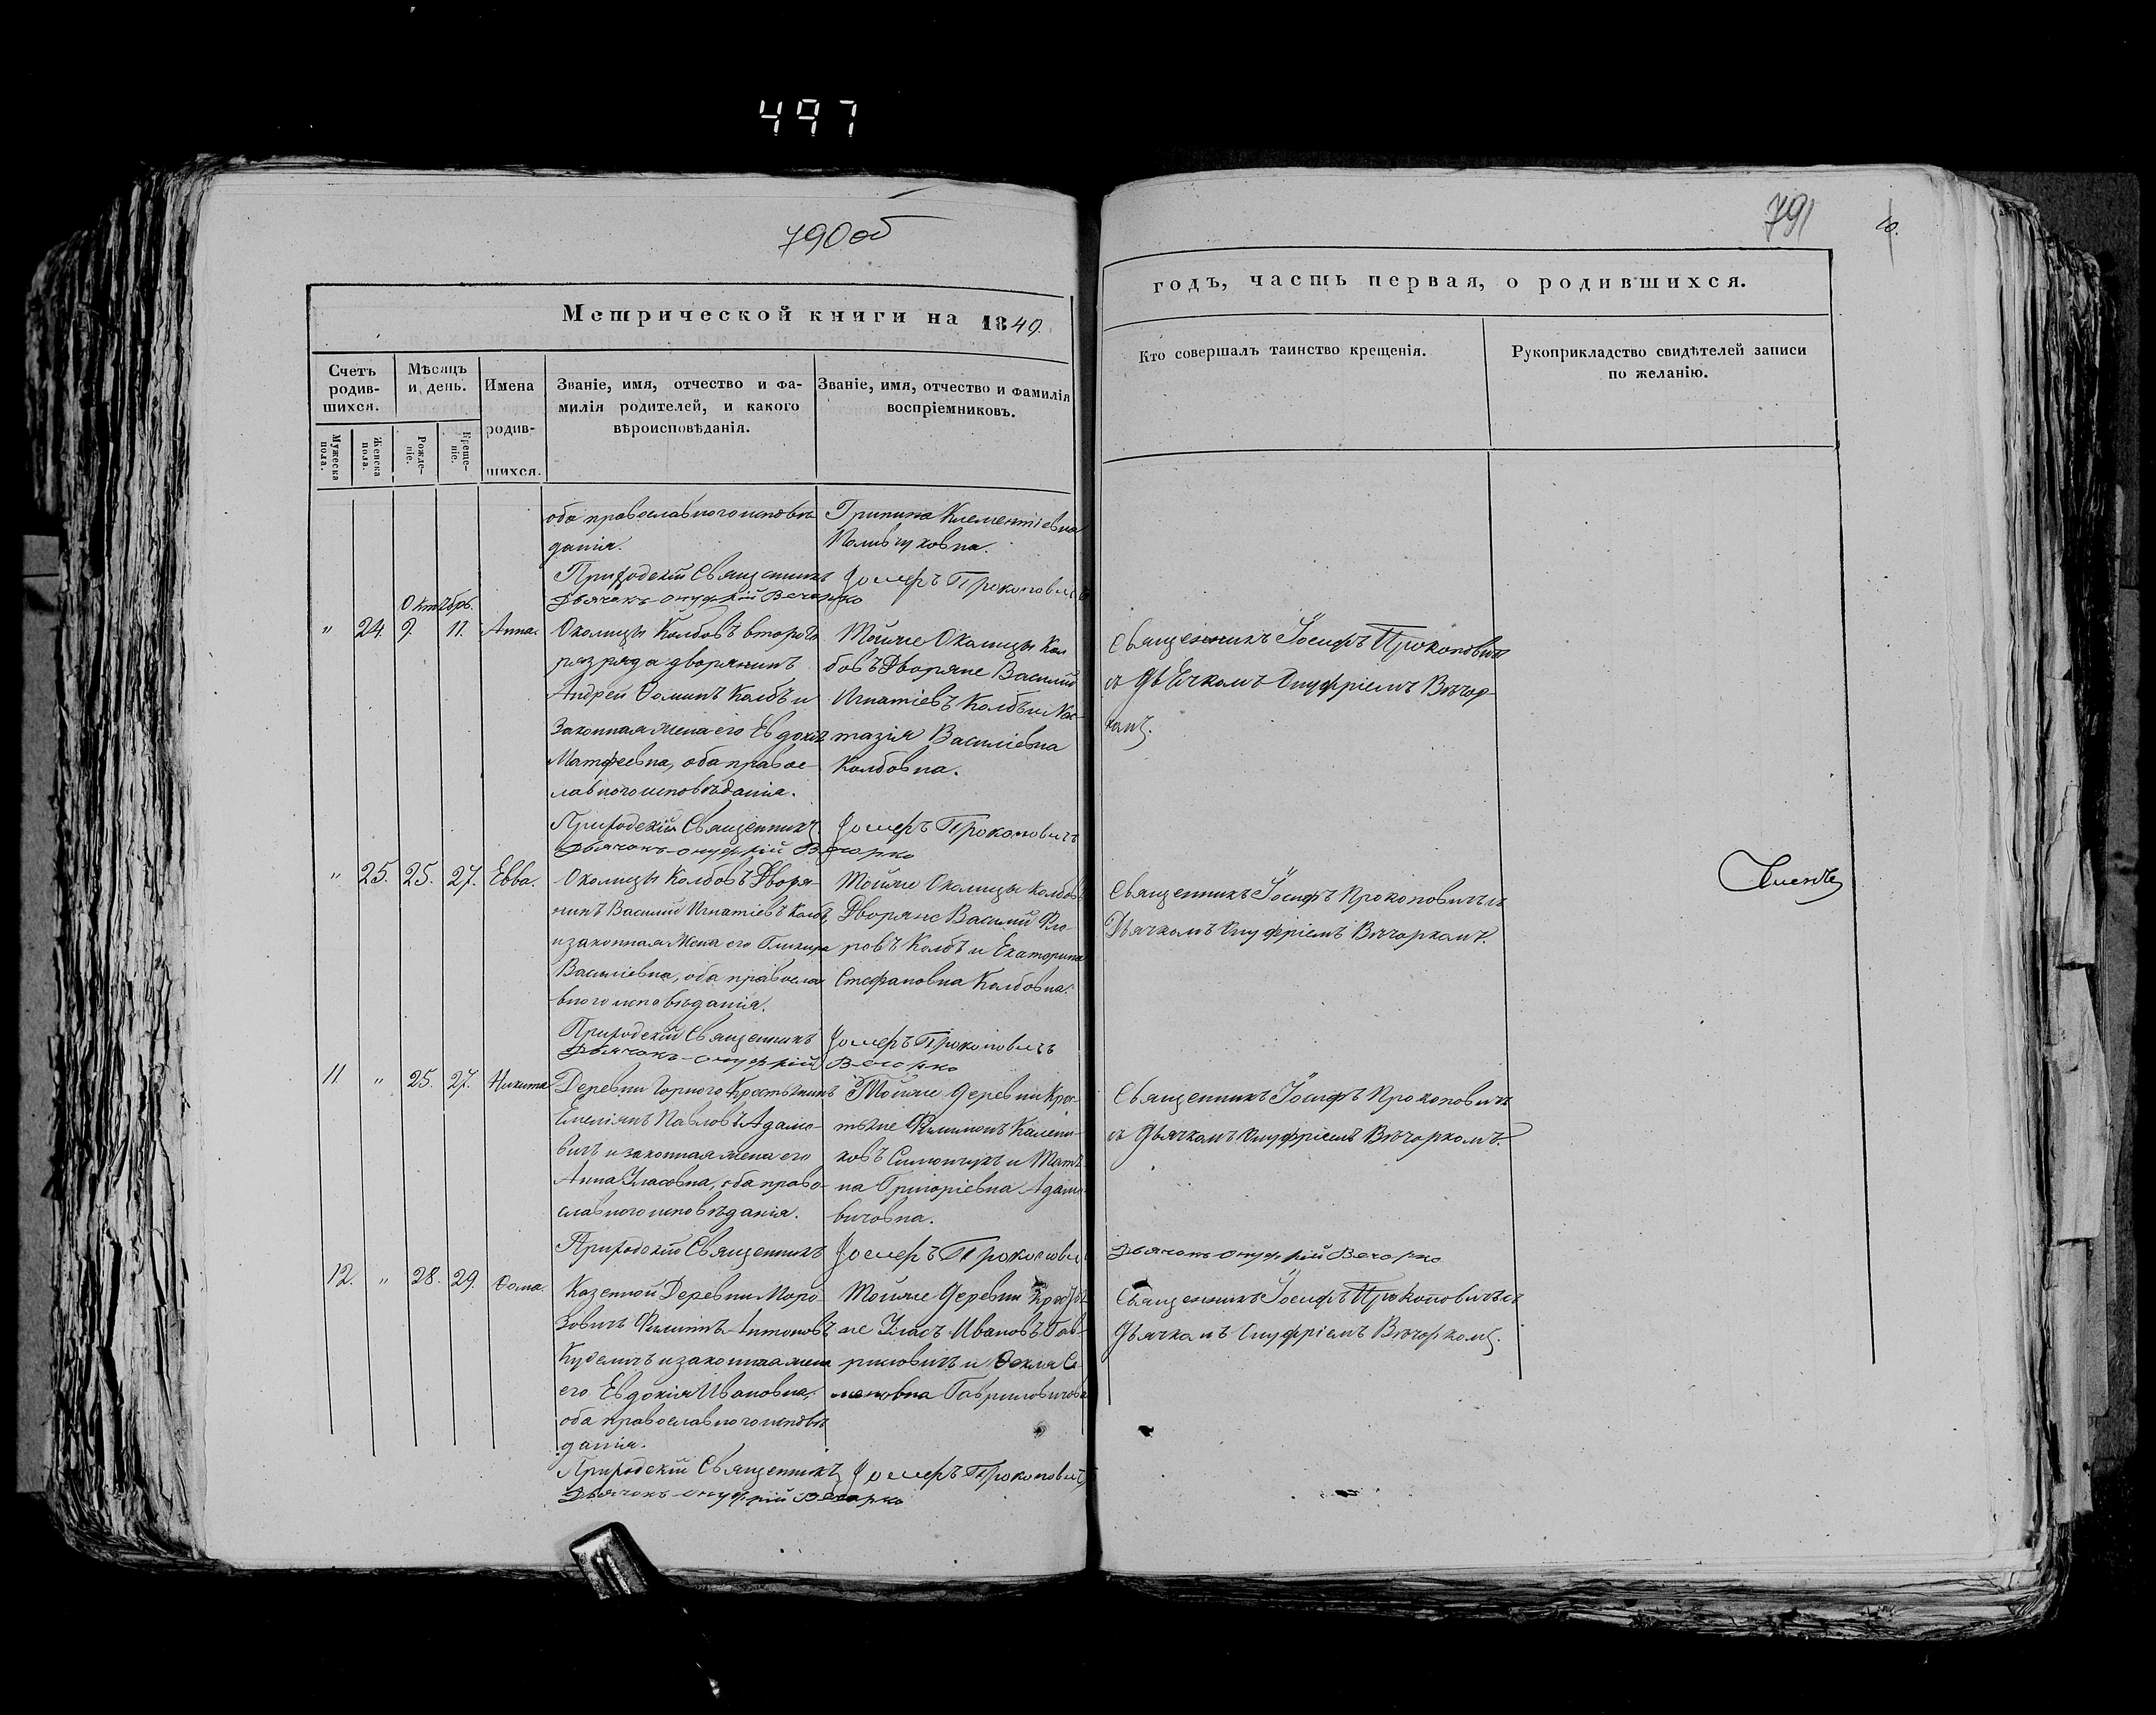 497
790об
Метрической книги на 1849.
Счетъ родив-шихся.
Мужеска пола.
Женска пола.
Мѣсяцъ и день.
Рожде-ніе.
Креще-ніе.
Имена родив-шихся.
Званіе, имя, отчество и фа-
милія родителей, и какого
вѣроисповѣданія.
Званіе, имя, отчество и фамилія
воспріемниковъ.
оба православного исповѣ
данія.
Грипина Клементіевна
Приходскій Священникъ Іосифъ Прокопович
Дьячокъ Онуфрій Вечорко
Октябр.
" 24. 9. 11. Анна.
Околицы Колбовъ второго
разряда дворянинъ
Андрей Ѳоминъ Колбъ и
Законная жена его Евдокія
Матфеевна, оба правос-
лавного исповѣданія.
Тойже Околицы Кол
бовъ Дворяне Василий
Игнатіевъ Колбъ и Нас-
тазія Василіевна
Колбовна.
Приходскій Священникъ Іосифъ Прокоповичъ
Дьячокъ Онуфрій Вечорко
" 25. 25. 27. Евва.
Околицы Колбовъ Дворя-
нинъ Василий Игнатіевъ Колбъ
и законная жена его Гликира
Василіевна, оба православ
вного исповѣданія.
Тойже Околицы Колбовъ
Дворяне Василий Фло-
ровъ Колбъ и Екатерина
Стефановна Колбовна.
Приходскій Священникъ Іосифъ Прокоповичъ
Дьячокъ Онуфрій Вечорко
11 " 25. 27. Никита
Деревни Горного Крестьянинъ
Емеліянъ Павловъ Адамо-
вичъ и законная жена его
Анна Уласовна, оба право-
славного исповѣданія.
Тойже деревни Крес-
тьяне Филимонъ
на Григоріевна Адамо
вичовна.
Приходскій Священникъ Іосифъ Прокопович
12. " 28. 29. Ѳома.
Казенной Деревни Моро-
зовичъ Филиппъ Антоновъ
Куделичъ и законная жена
его Евдокія Ивановна,
оба православного исповѣ
данія.
Тойже деревни
не Уласъ Ивановъ Гав-
риловичъ и Ѳекла Се
меновна Гавриловичова
Приходскій Священникъ Іосифъ Прокоповичъ
Дьячокъ Онуфрій Вечорко
791
годъ, часть первая, о родившихся.
Кто совершалъ таинство крещенія.
Рукоприкладство свидѣтелей записи
по желанію.
Священникъ Іосифъ Прокоповичъ
съ Дьячкомъ Онуфріемъ Вѣчор-
комъ.
Священникъ Іосифъ Прокоповичъ съ
Дьячкомъ Онуфріемъ Вѣчоркомъ.
Священникъ Іосифъ Прокоповичъ
съ Дьячкомъ Онуфріемъ Вѣчоркомъ.
Дьячокъ Онуфрій Вечорко
Священникъ Іосифъ Прокоповичъ съ
Дьячкомъ Онуфріемъ Вѣчоркомъ.